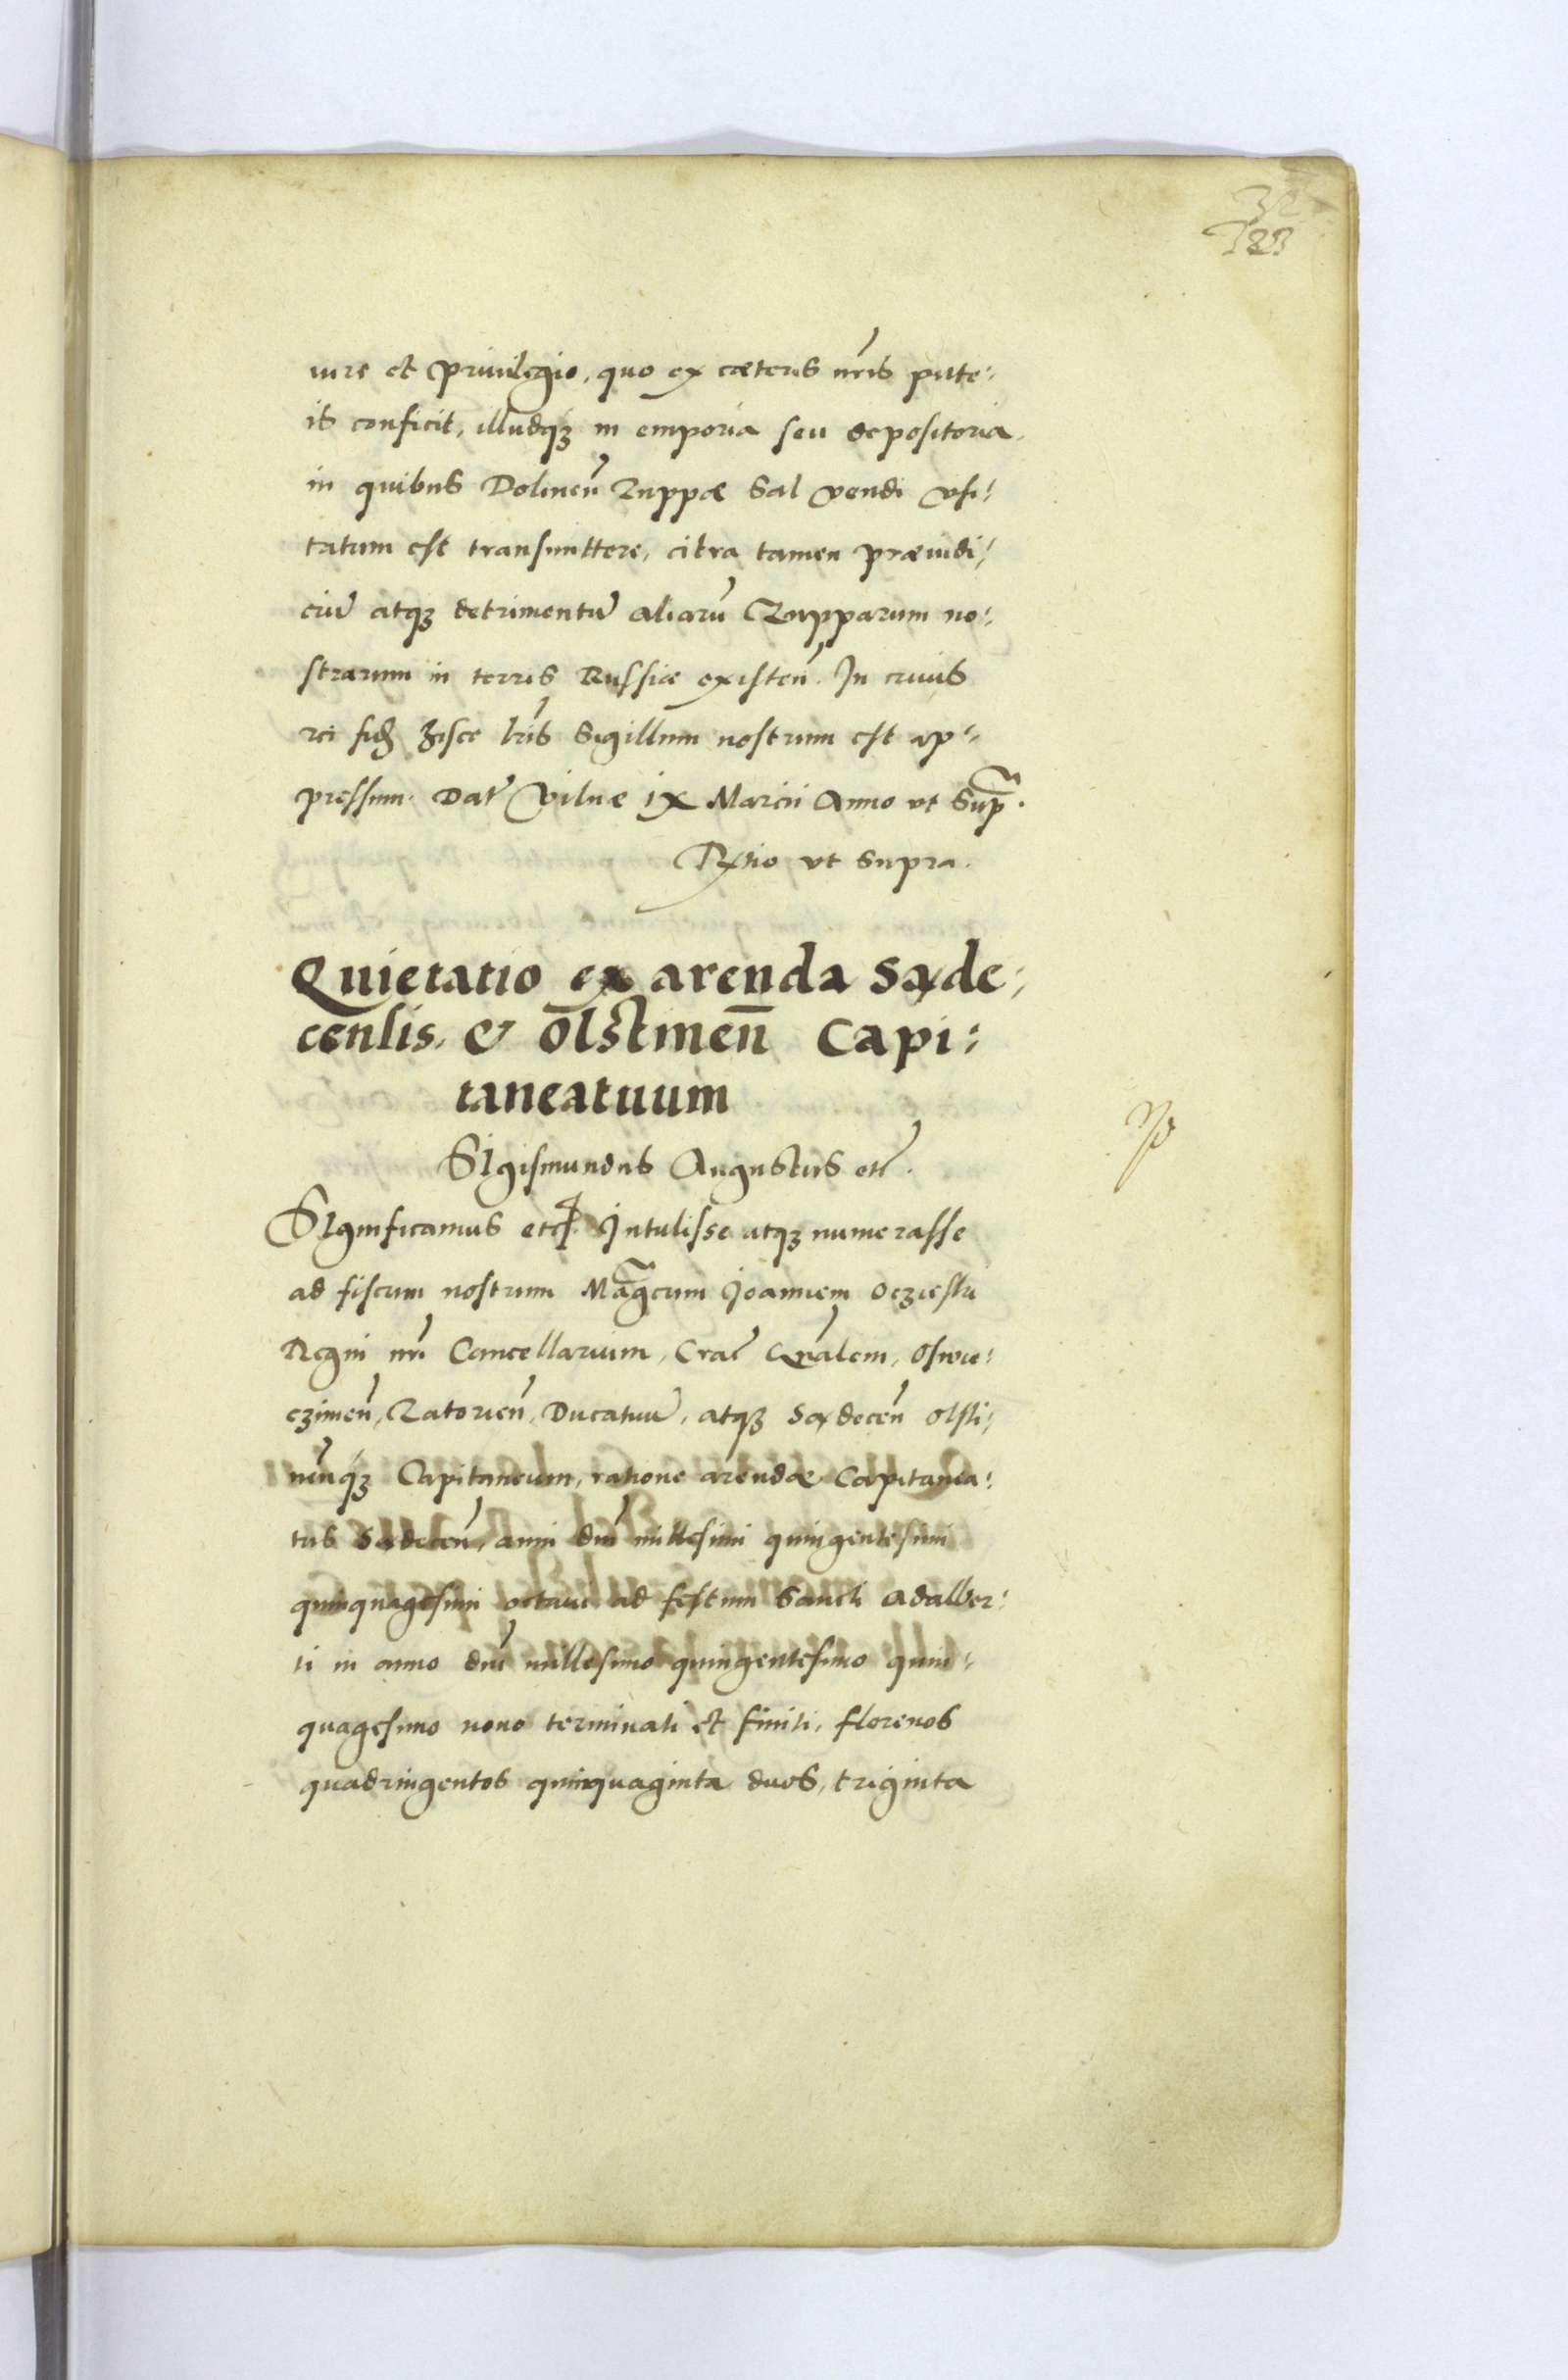 iure et Priuilegio, quo ex cæteris nr̃is pute:
is conficit, illudqꝫ in emporia seu depositoria
in quibus Dolinen̄ Zuppæ Sal vendi vsi:
tatum est transmittere, citra tamen præiudi:
ciū atqꝫ detrimentū aliarū Zupparum no:
strarum in terris Russiæ existen̄. In cuius
rei fidē hisce lr̃is Sigillum nostrum est ap:
pressum. Dat̃ Vilnæ ix Marcii Anno vt Supᵃ.
Rᵃtio vt supra.
Quietatio ex arenda Sãde:
censis, & Olstinen̄ Capi:
taneatuum
SIgismundus Augustus etc̃.
SIgnificamus etc. Intulisse atqꝫ numerasse
ad fiscum nostrum Mag̃cum Joannem Oczieski
Regni nr̃i Cancellarium, Crac̃ Gn̄alem, Oswie:
czimen̄, Zatorien̄, Ducatuū, atqꝫ Sãdecen̄ Olsti:
nen̄qꝫ Capitaneum, ratione arendæ Capitanea:
tus Sãdecen̄, anni dn̄i millesimi quingentesimi
quinquagesimi octaui ad festum Sancti Adalber:
ti in anno dn̄i millesimo quingentesimo quin:
quagesimo nono terminati et finiti, florenos
quadringentos quinquaginta duos, triginta